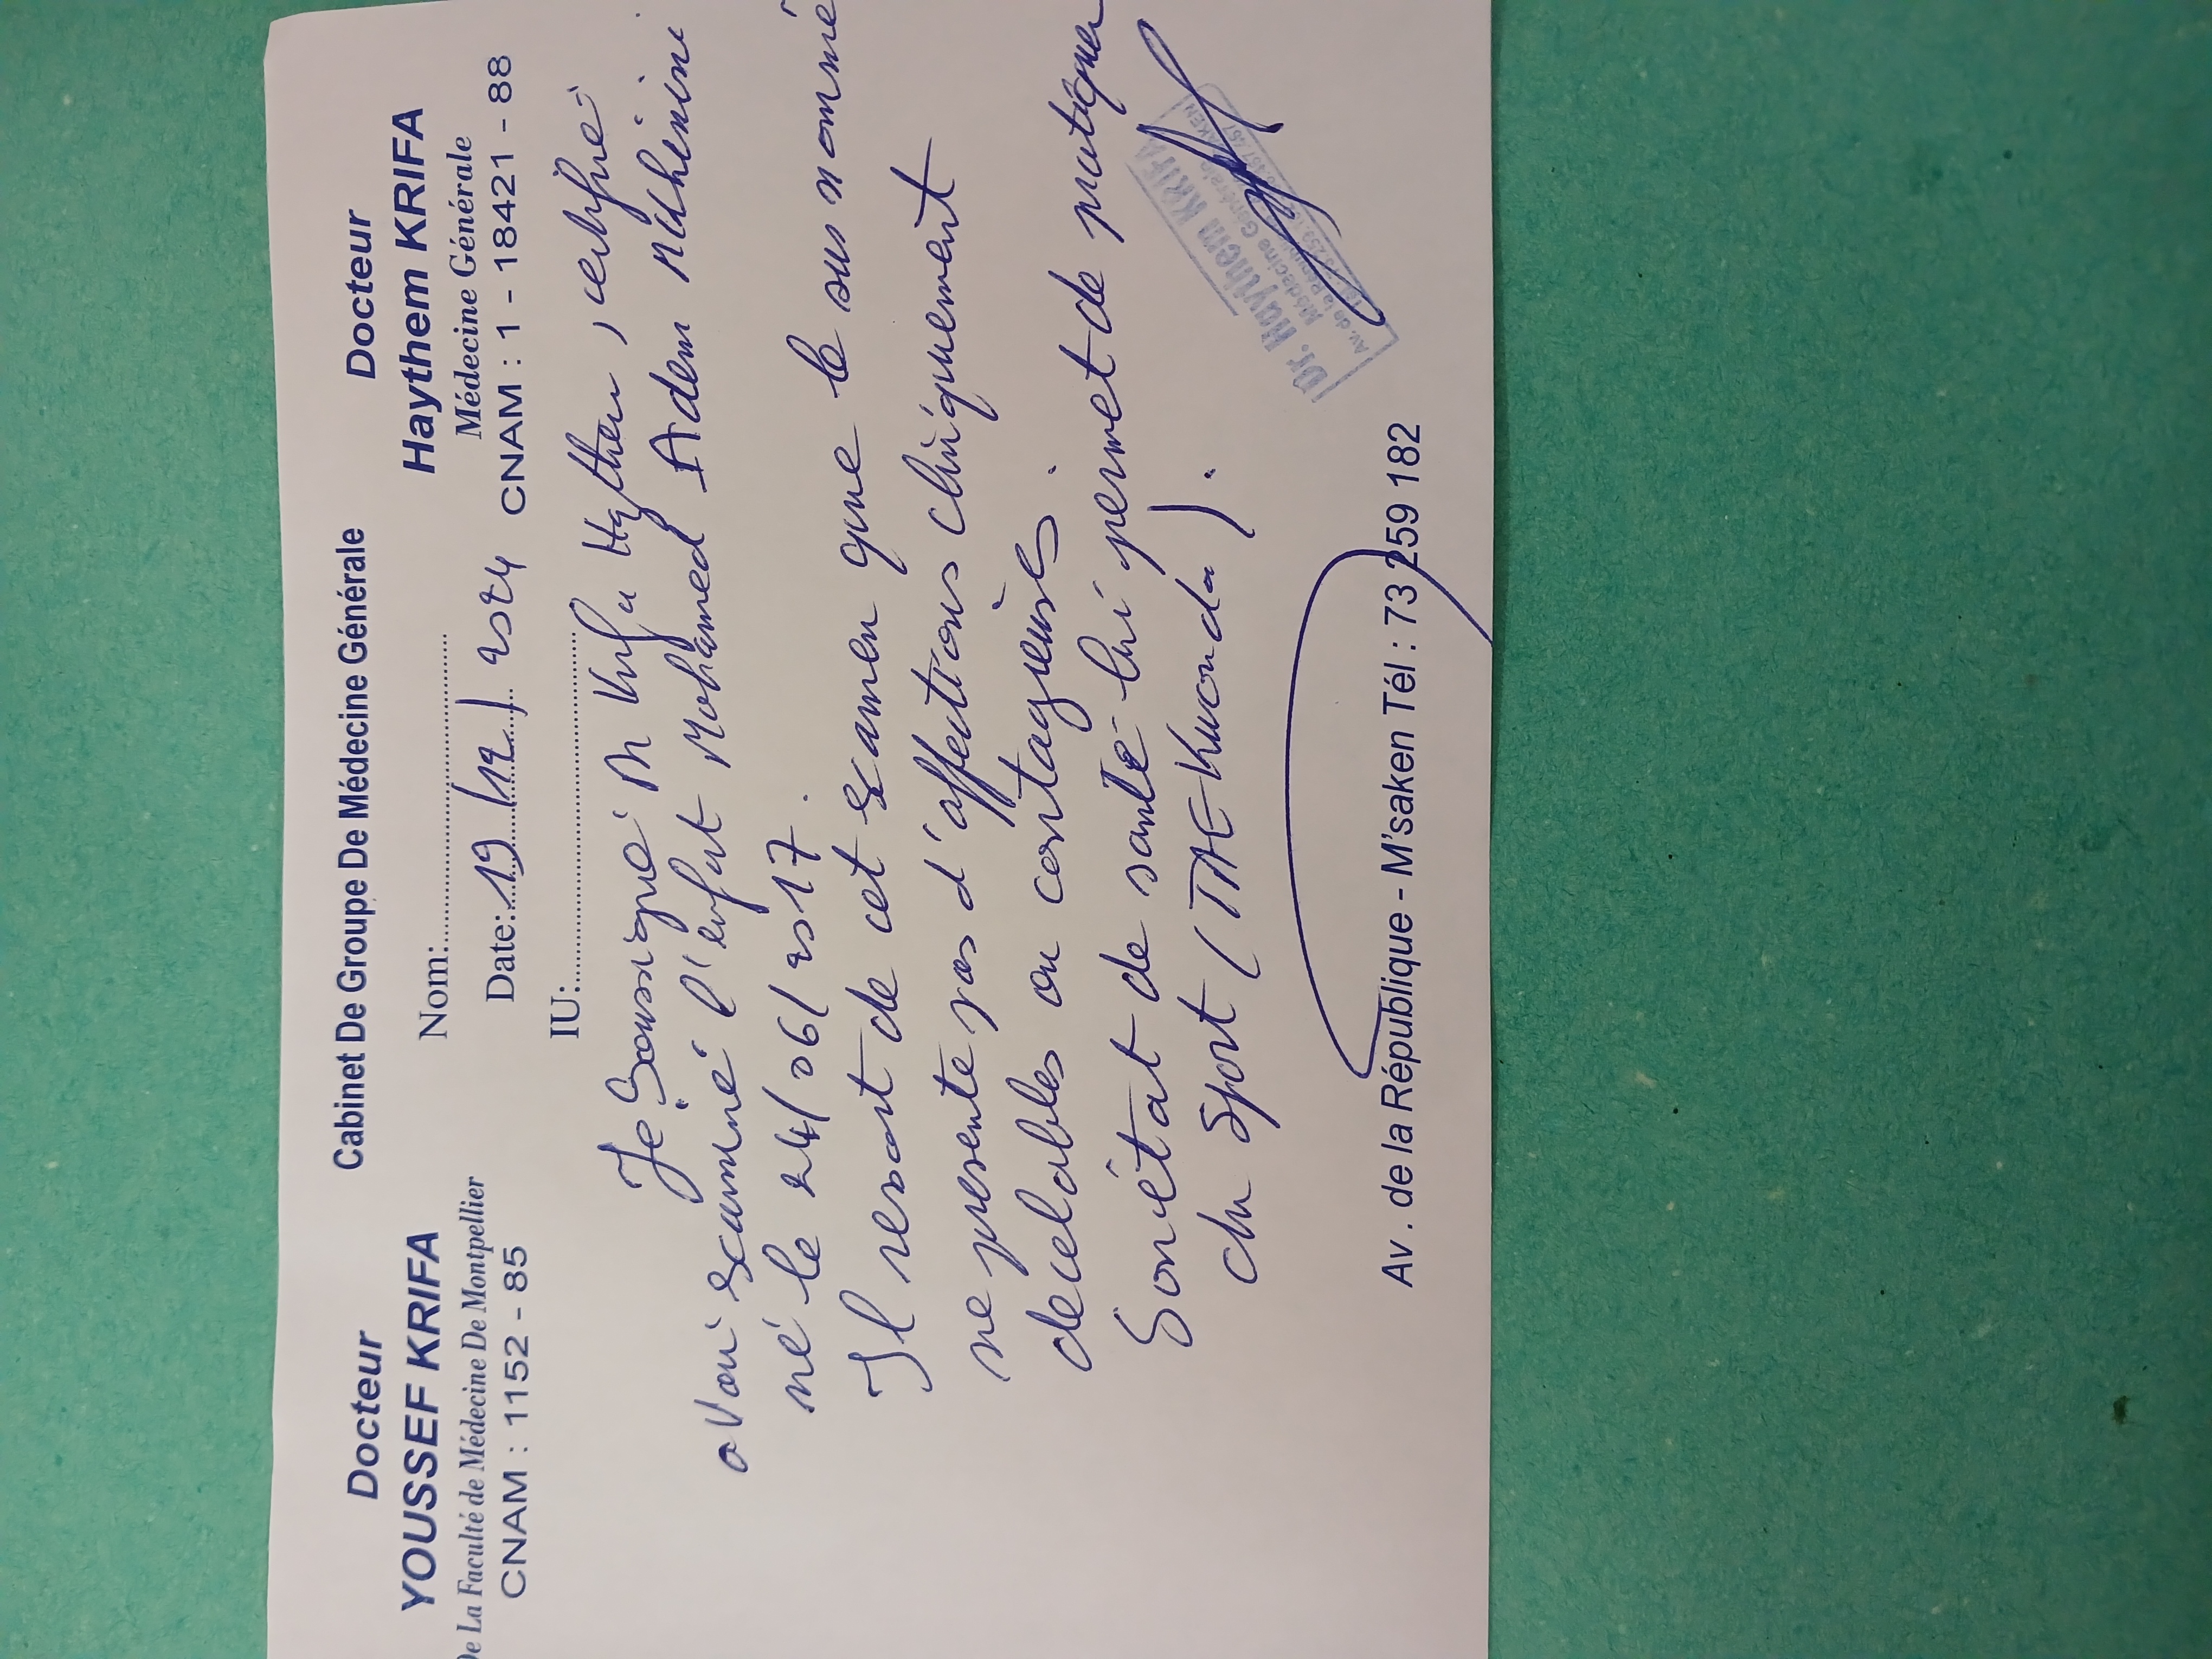 Cabinet De Groupe De Médecine Générale
Docteur
YOUSSEF KRIFA
De La Faculté de Médecine De Montpellier
CNAM : 1152 - 85
Docteur
Haythem KRIFA
Médecine Générale
CNAM : 1 - 18421 - 88
Nom:
Date: 19/12/2024
IU:
Je Soussigné Dr Krifa Haythem, certifie
avoir examiné l'enfant Mohamed Adem
né le 24/06/2017.
Il ressort de cet examen que le sus nommé
ne présente pas d'affections cliniquement
décelables ou contagieuses.
Son état de santé lui permet de pratiquer
du Sport (TAEKwonda).
Dr. Haythem KRIFA
Médecine Générale
Av. de la République
Av. de la République - M'saken Tél : 73 259 182